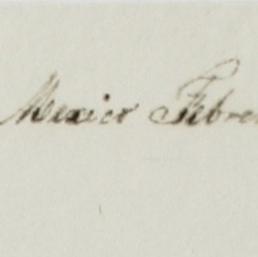 Mexico Febre